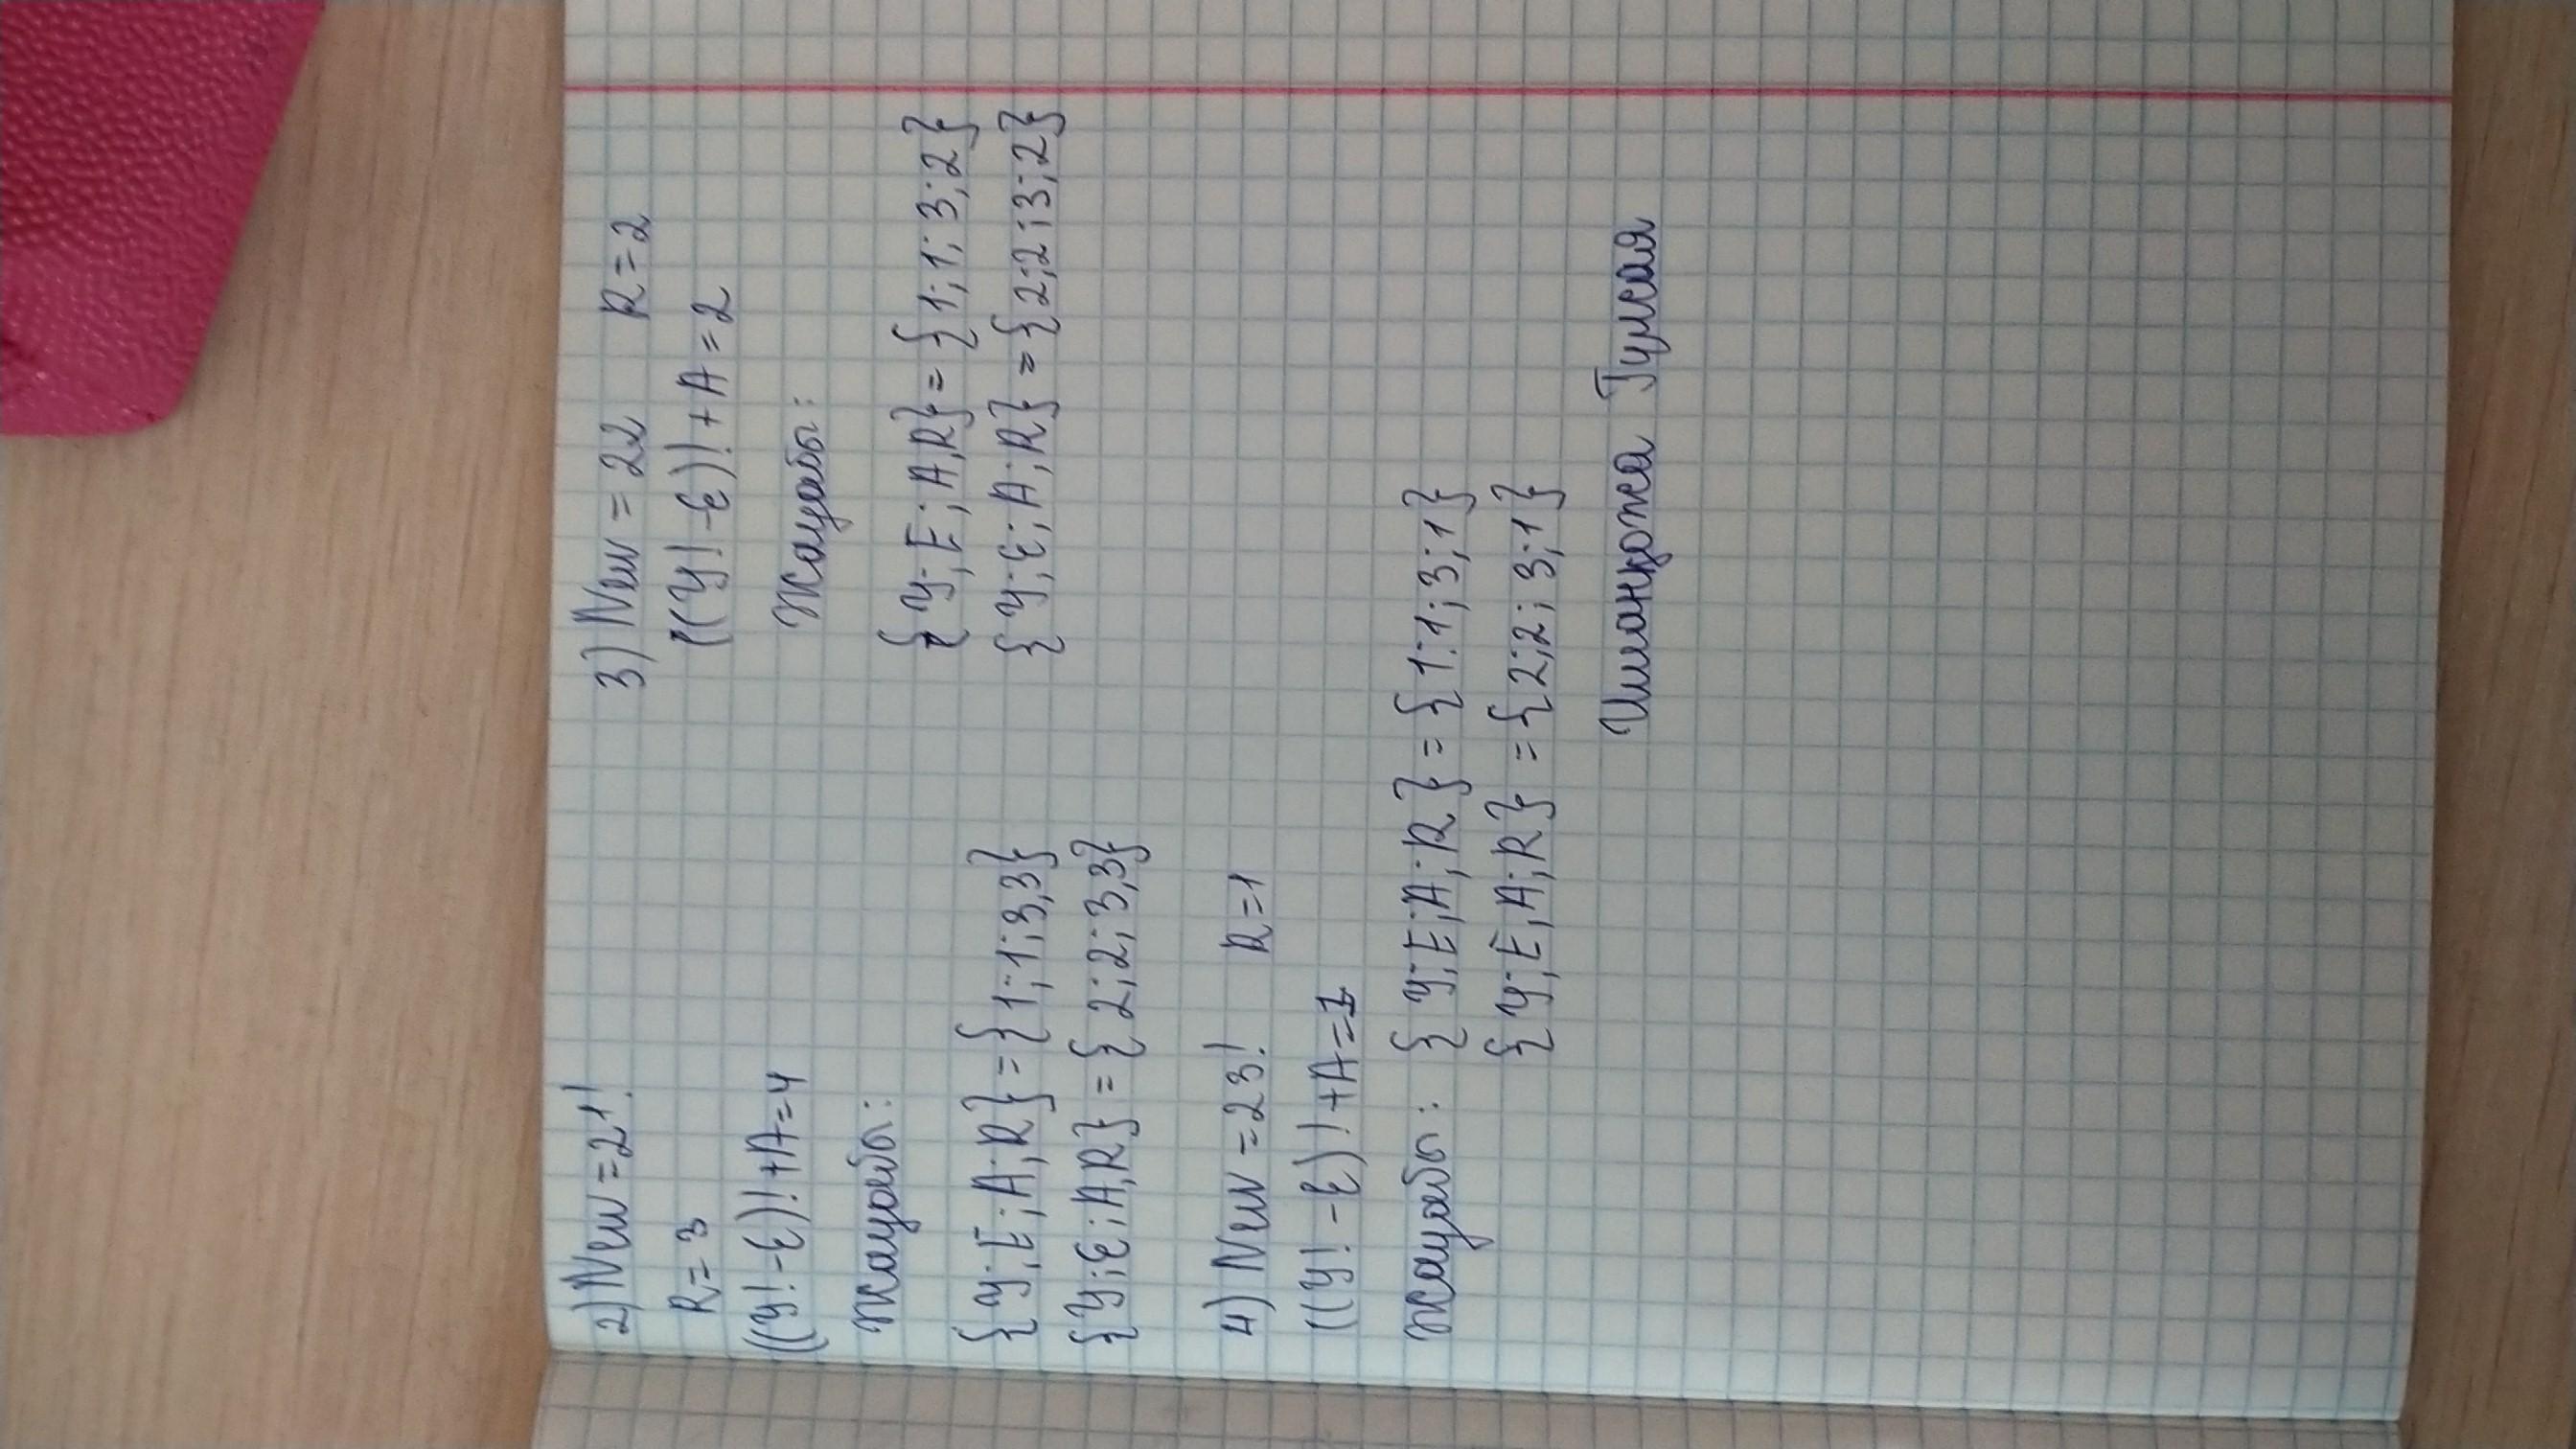 2) New = 21!
R = 3
((y! - E)! + A = 4
Жауабы:
{y; E; A; R} = {1; 1; 3,3}
{y; E; A, R} = {2; 2; 3,3}
3) New = 22 R = 2
((y! - E)! + A = 2
Жауабы:
{y; E; A, R} = {1; 1; 3; 2}
{y; E; A; R} = {2; 2; 3; 2}
4) New = 23! R = 1
((y! - E)! + A = 1
Жауабы: {y; E; A; R} = {1; 1; 3; 1}
{y; E; A; R} = {2; 2; 3; 1}
Иманқожа